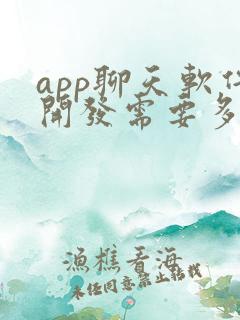 app聊天軟件
開發需要多
漁樵看海
未經同意禁止轉載